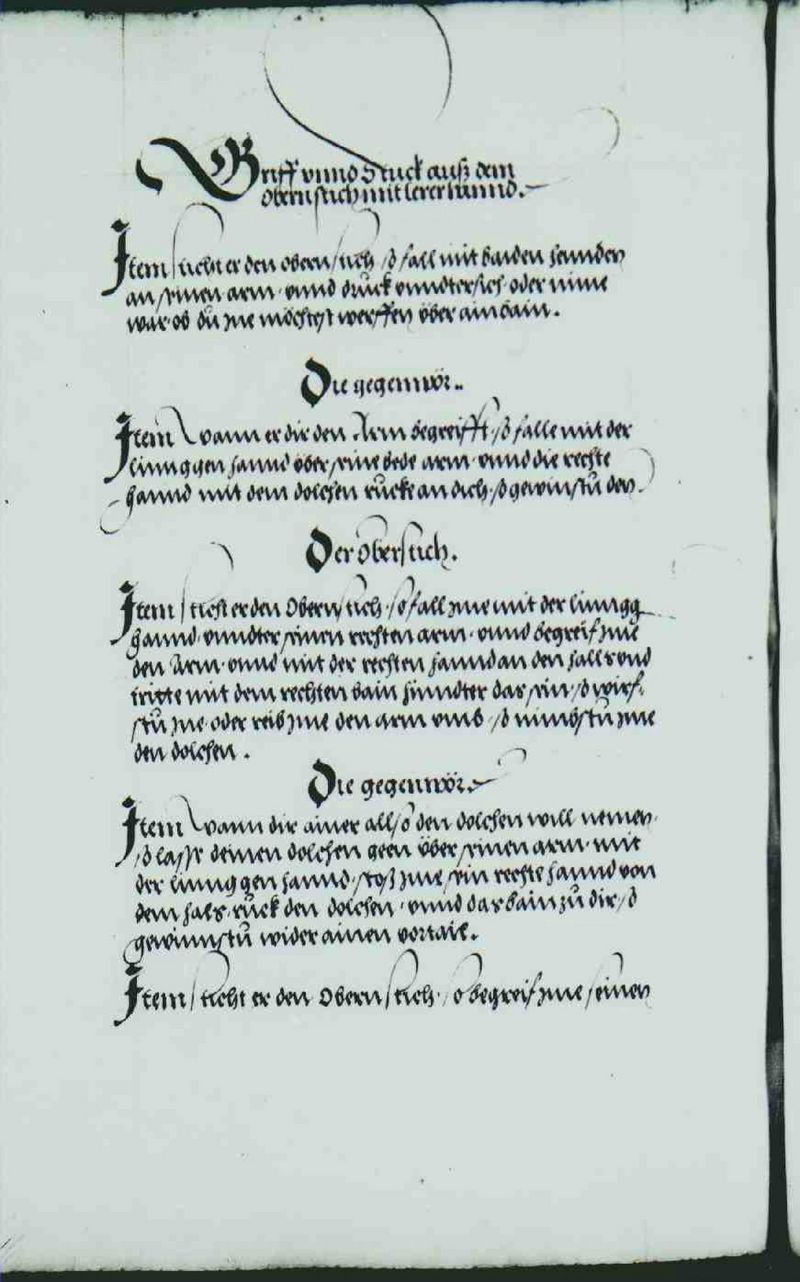 Griff vnnd Stuck auß dem
obern stich mit lerer hannd.
Item sticht er den obern stich / so fall mit baiden hennden
an seinen arm · vnnd druck vnndtersich · oder nime
war · ob du jne möchtest werffen über ain bain.
Die gegenwör..
Item wann er dir den Arm begreifft · so falle mit der
linnggen hannd über seine bede arm · vnnd die rechte
hannd mit dem dolchen rucke an dich · so gewinstu den
Der Oberstich.
Item sticht er den Obern stich · so fall jme mit der linngg
hannd vnndter seinen rechten arm · vnnd begreif jme
den Arm · vnnd mit der rechten hannd an den halls vnd
tritte mit dem rechten bain hinndter das sein · so wirf-
stu jne · oder reib jme den arm vmb · so nimbstu jme
den dolchen.
Die gegenwör.
Item wann dir ainer allso den dolchen will nemen ·
so lasse deinen dolchen geen über seinen arm · mit
der linnggen hannd · stoß jme sein rechte hannd von
dem hals · ruck den dolchen · vnnd das bain zu dir · so
gewinnstu wider ainen vortail.
Item sticht er den Obern stich · so begreif jme seinen